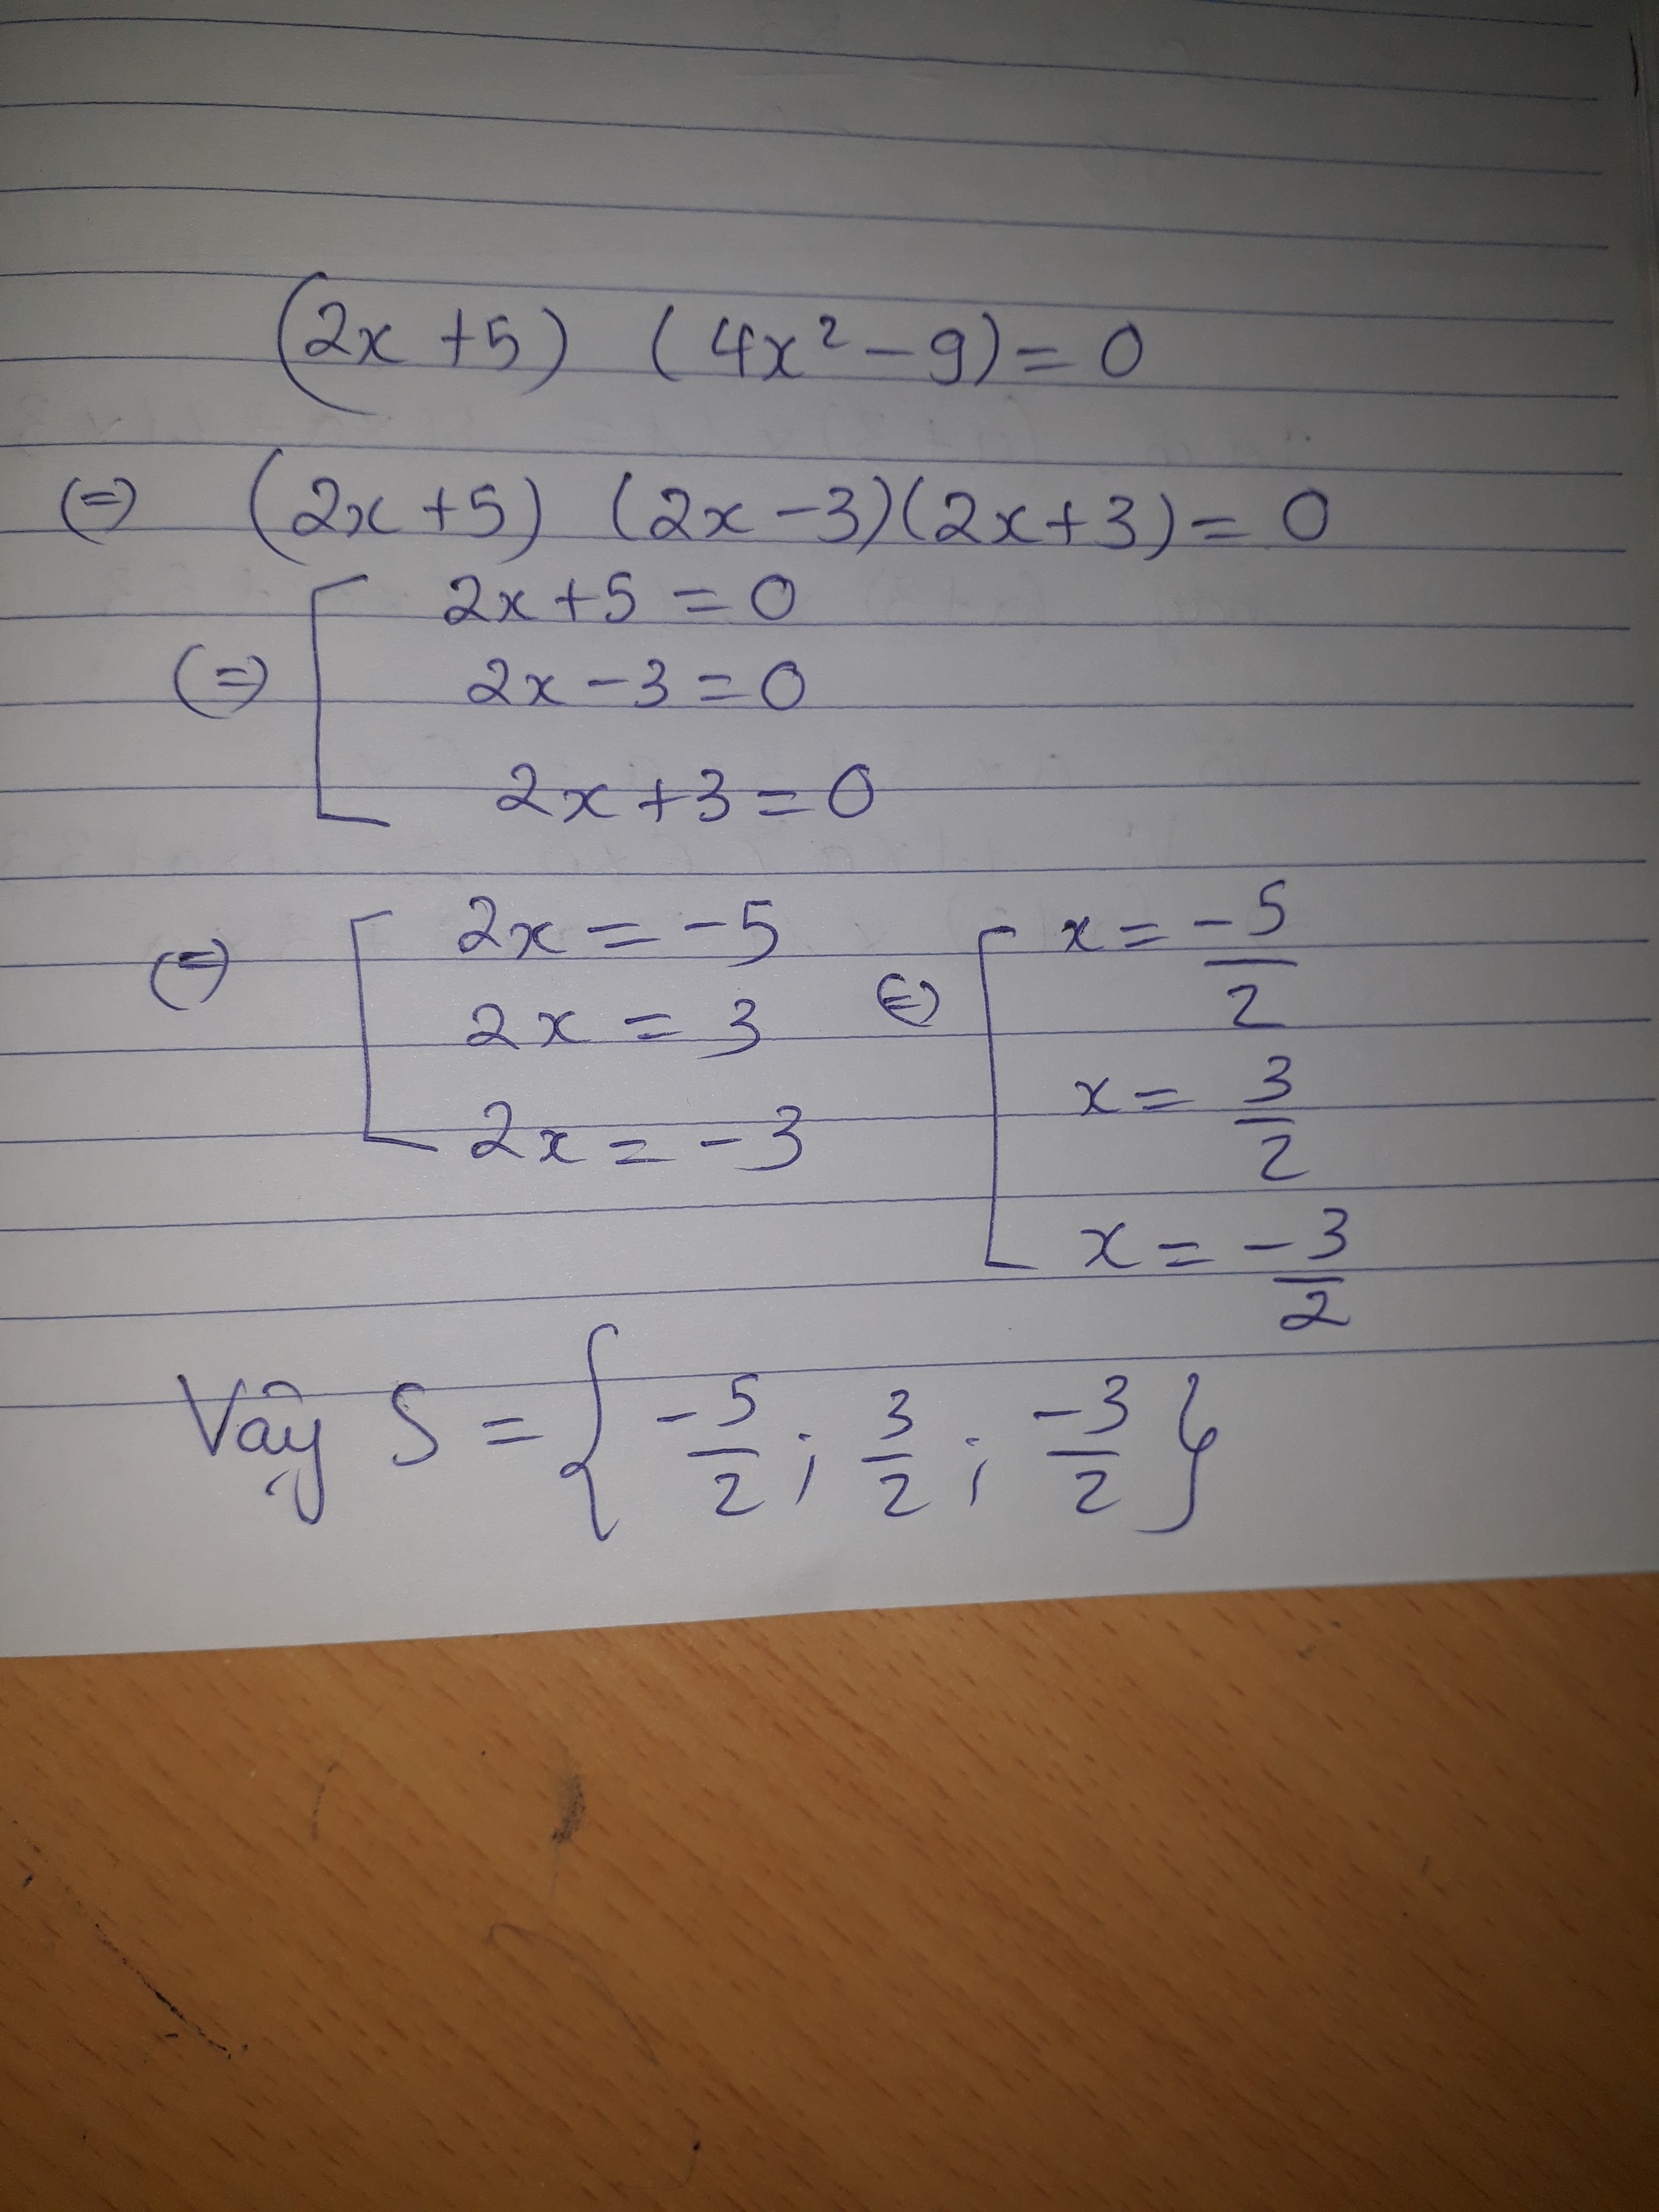 (2x +5) (4x² - 9) = 0
(=) (2x +5) (2x - 3)(2x+3) = 0
(=) [ 2x+5 = 0
2x - 3 = 0
2x + 3 = 0
(=) [ 2x = -5 (=) [ x = -5/2
2x = 3 x = 3/2
2x = -3 x = -3/2
Vậy S = { -5/2 ; 3/2 ; -3/2 }